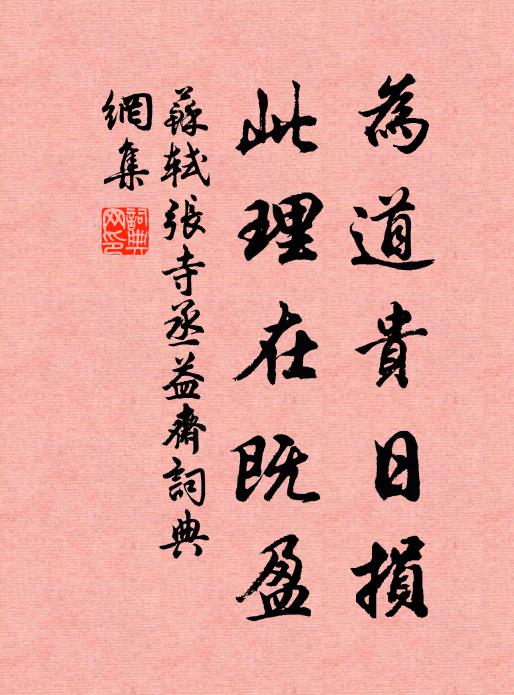 為道貴日損
此理在既盈
蘇軾張寺丞益齋詞典
網集
詞典
网印